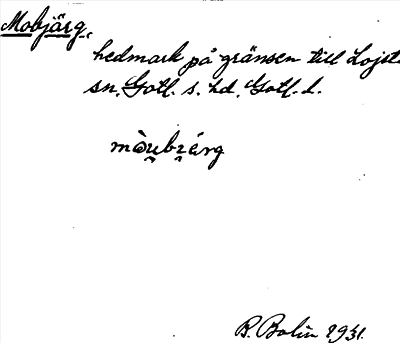 Mobjärg,
hedmark på gränsen till Lojsta
sn. Gotl. s. hd. Gotl. l.
mòu̯bi̯érg
B. Bolin 1931.